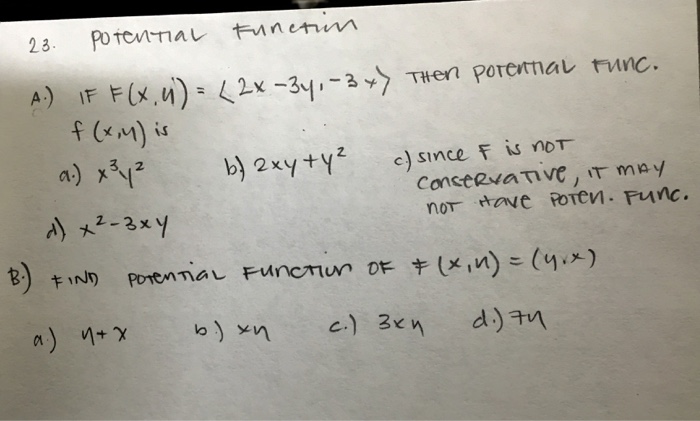 23. POTENTIAL FUNCTION
A.) IF F(x,y) = <2x-3y,-3x> THEN POTENTIAL FUNC.
f(x,y) is
a.) x³y² b) 2xy+y² c) SINCE F is NOT
CONSERVATIVE, IT MAY
NOT HAVE POTEN. FUNC.
d) x²-3xy
B.) FIND POTENTIAL FUNCTION OF F(x,y) = (y,x)
a.) y+x b.) xy c.) 3xy d.) 7y